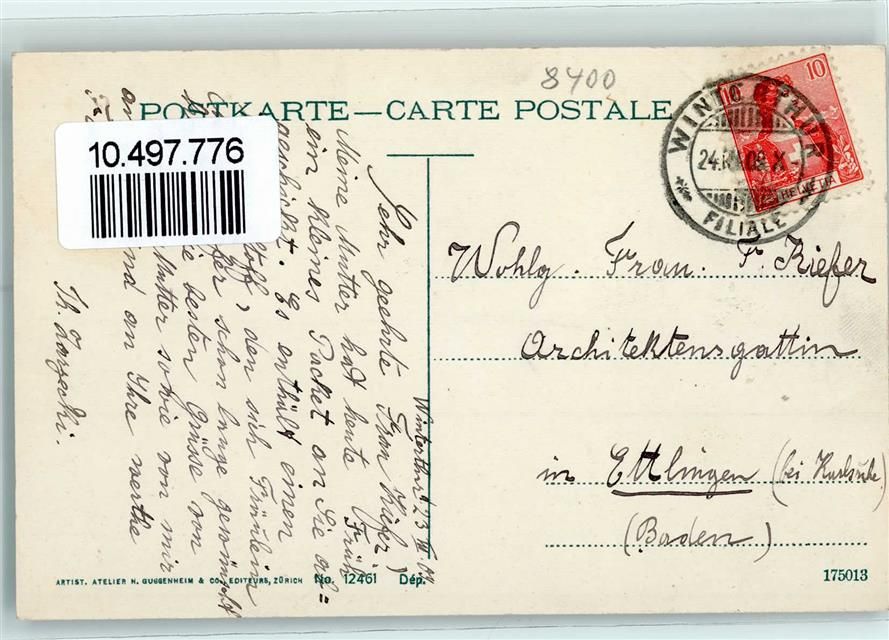 8400
POSTKARTE — CARTE POSTALE
10.497.776
WINTERTHUR
24.
FILIALE
10
HELVETIA
Wohlg. Frau. F. Kiefer
Architektensgattin
in Ettlingen (bei Karlsruhe)
(Baden)
Winterthur, 23
Sehr geehrte Frau Kiefer,
Meine Mutter hat heute Früh
ein kleines Packet an Sie ab=
geschickt. Es enthält einen
Stoff, den sich Fräulein
schon lange gewünscht
die besten Grüsse von
Mutter sowie von mir
und an Ihre werthe
Th.
ARTIST. ATELIER H. GUGGENHEIM & CO., EDITEURS, ZÜRICH No. 12461 Dép.
175013